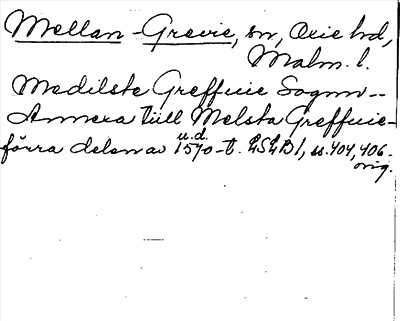 Mellan-Grevie, sn, Oxie hd,
Malm. l.
Medilste Greffuie Sognn --
Annexa tiill Melsta Greffuie -
u.d.
förra delen av 1570-t. LSLB1, s. 404, 406.
orig.